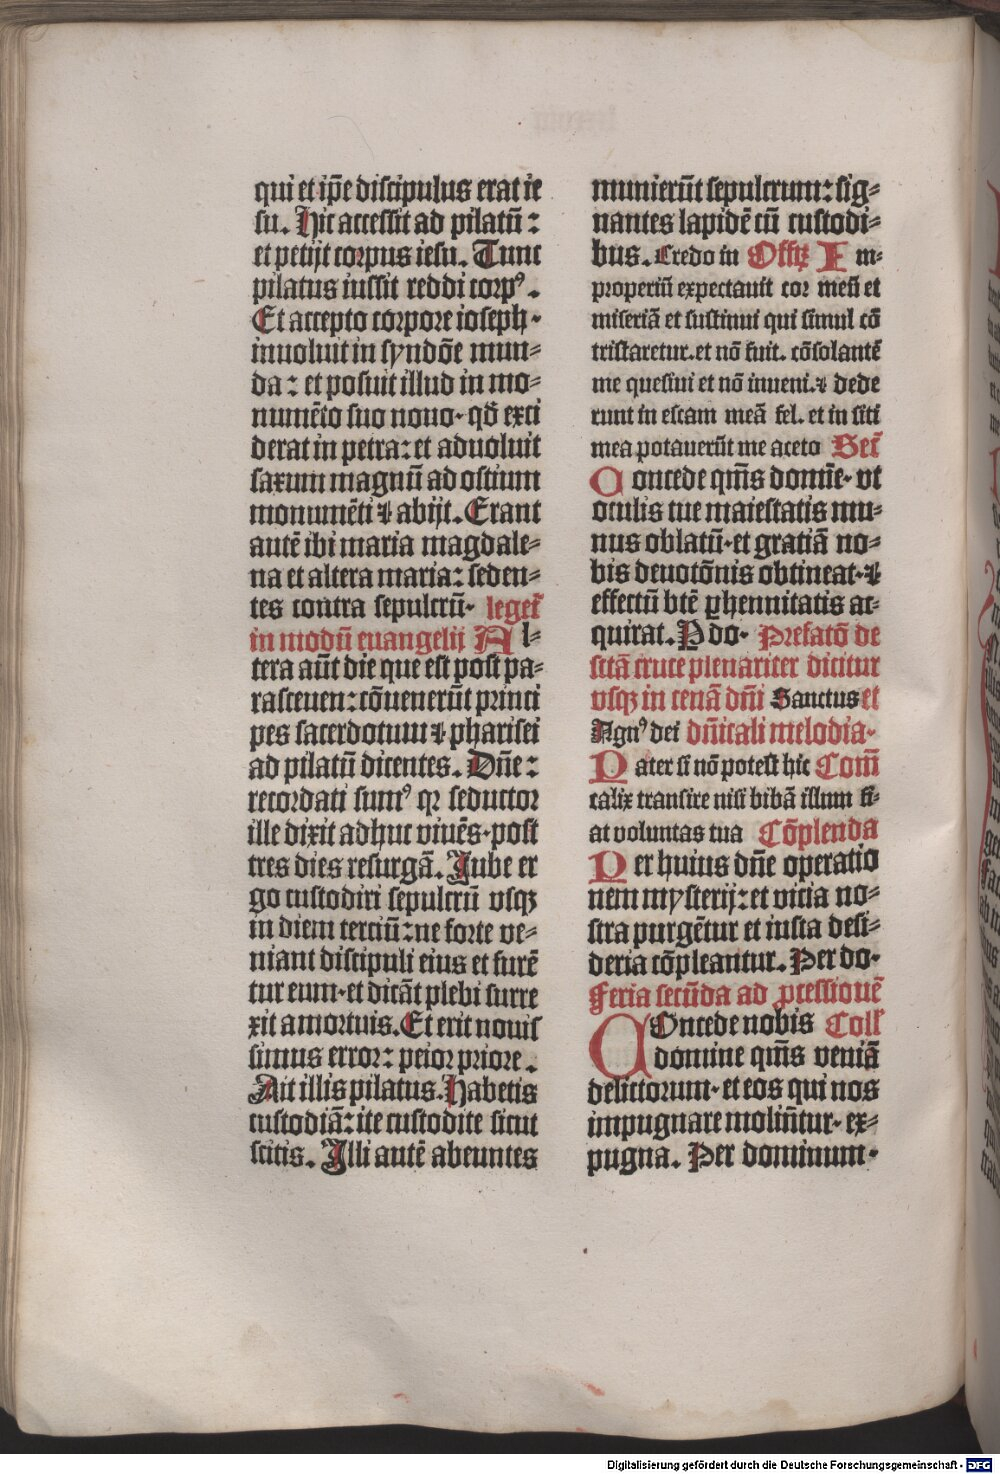 qui et ip̄e discipulus erat ie
su. Hic accessit ad pilatū :
et petijt corpus iesu. Tunc
pilatus iussit reddi corpꝰ.
Et accepto corpore ioseph·
inuoluit in syndōe mun-
da: et posuit illud in mo-
numēto suo nouo· qd̄ exci
derat in petra: et aduoluit
saxum magnū ad ostium
monumēti ⁊ abijt. Erant
autē ibi maria magdale-
na et altera maria: seden-
tes contra sepulcrū· leget̄
in modū euangelij Al-
tera aūt die que est post pa-
rasceuen: cōuenerūt princi
pes sacerdotum ⁊ pharisei
ad pilatū dicentes. Dn̄e:
recordati sumꝰ qꝛ seductor
ille dixit adhuc viuēs· post
tres dies resurgā. Jube er
go custodiri sepulcrū vsqꝫ
in diem terciū: ne forte ve-
niant discipuli eius et furē
tur eum· et dicāt plebi surre
xit a mortuis. Et erit nouis
simus error: peior priore.
Ait illis pilatus. Habetis
custodiā: ite custodite sicut
scitis. Illi autē abeuntes
munierūt sepulcrum: sig-
nantes lapidē cū custodi-
bus. Credo in Offꝫ Im-
properiū expectauit cor meū et
miseriā et sustinui qui simul cō
tristaretur. et nō fuit. cōsolantē
me quesiui et nō inueni. ⁊ dede
runt in escam meā fel. et in siti
mea potauerūt me aceto Sec̄
Concede qm̄s domīe· vt
oculis tue maiestatis mu-
nus oblatū· et gratiā no-
bis deuotōnis obtineat· ⁊
effectū btē ꝑhennitatis ac-
quirat. P do· Prefatō de
sctā cruce plenariter dicitur
vsqꝫ in cenā dn̄i Sanctus et
Agnꝰ dei dn̄icali melodia·
Pater si nō potest hic Com̄
calix transire nisi bibā illum fi-
at voluntas tua Cōplenda
Per huius dn̄e operatio
nem mysterij: et vicia no-
stra purgētur et iusta desi-
deria cōpleantur. Per do·
Feria secūda ad ꝓcessionē
COncede nobis Coll̄
domine qm̄s veniā
delictorum· et eos qui nos
impugnare molin̄tur· ex-
pugna. Per dominum·
Digitalisierung gefördert durch die Deutsche Forschungsgemeinschaft - DFG